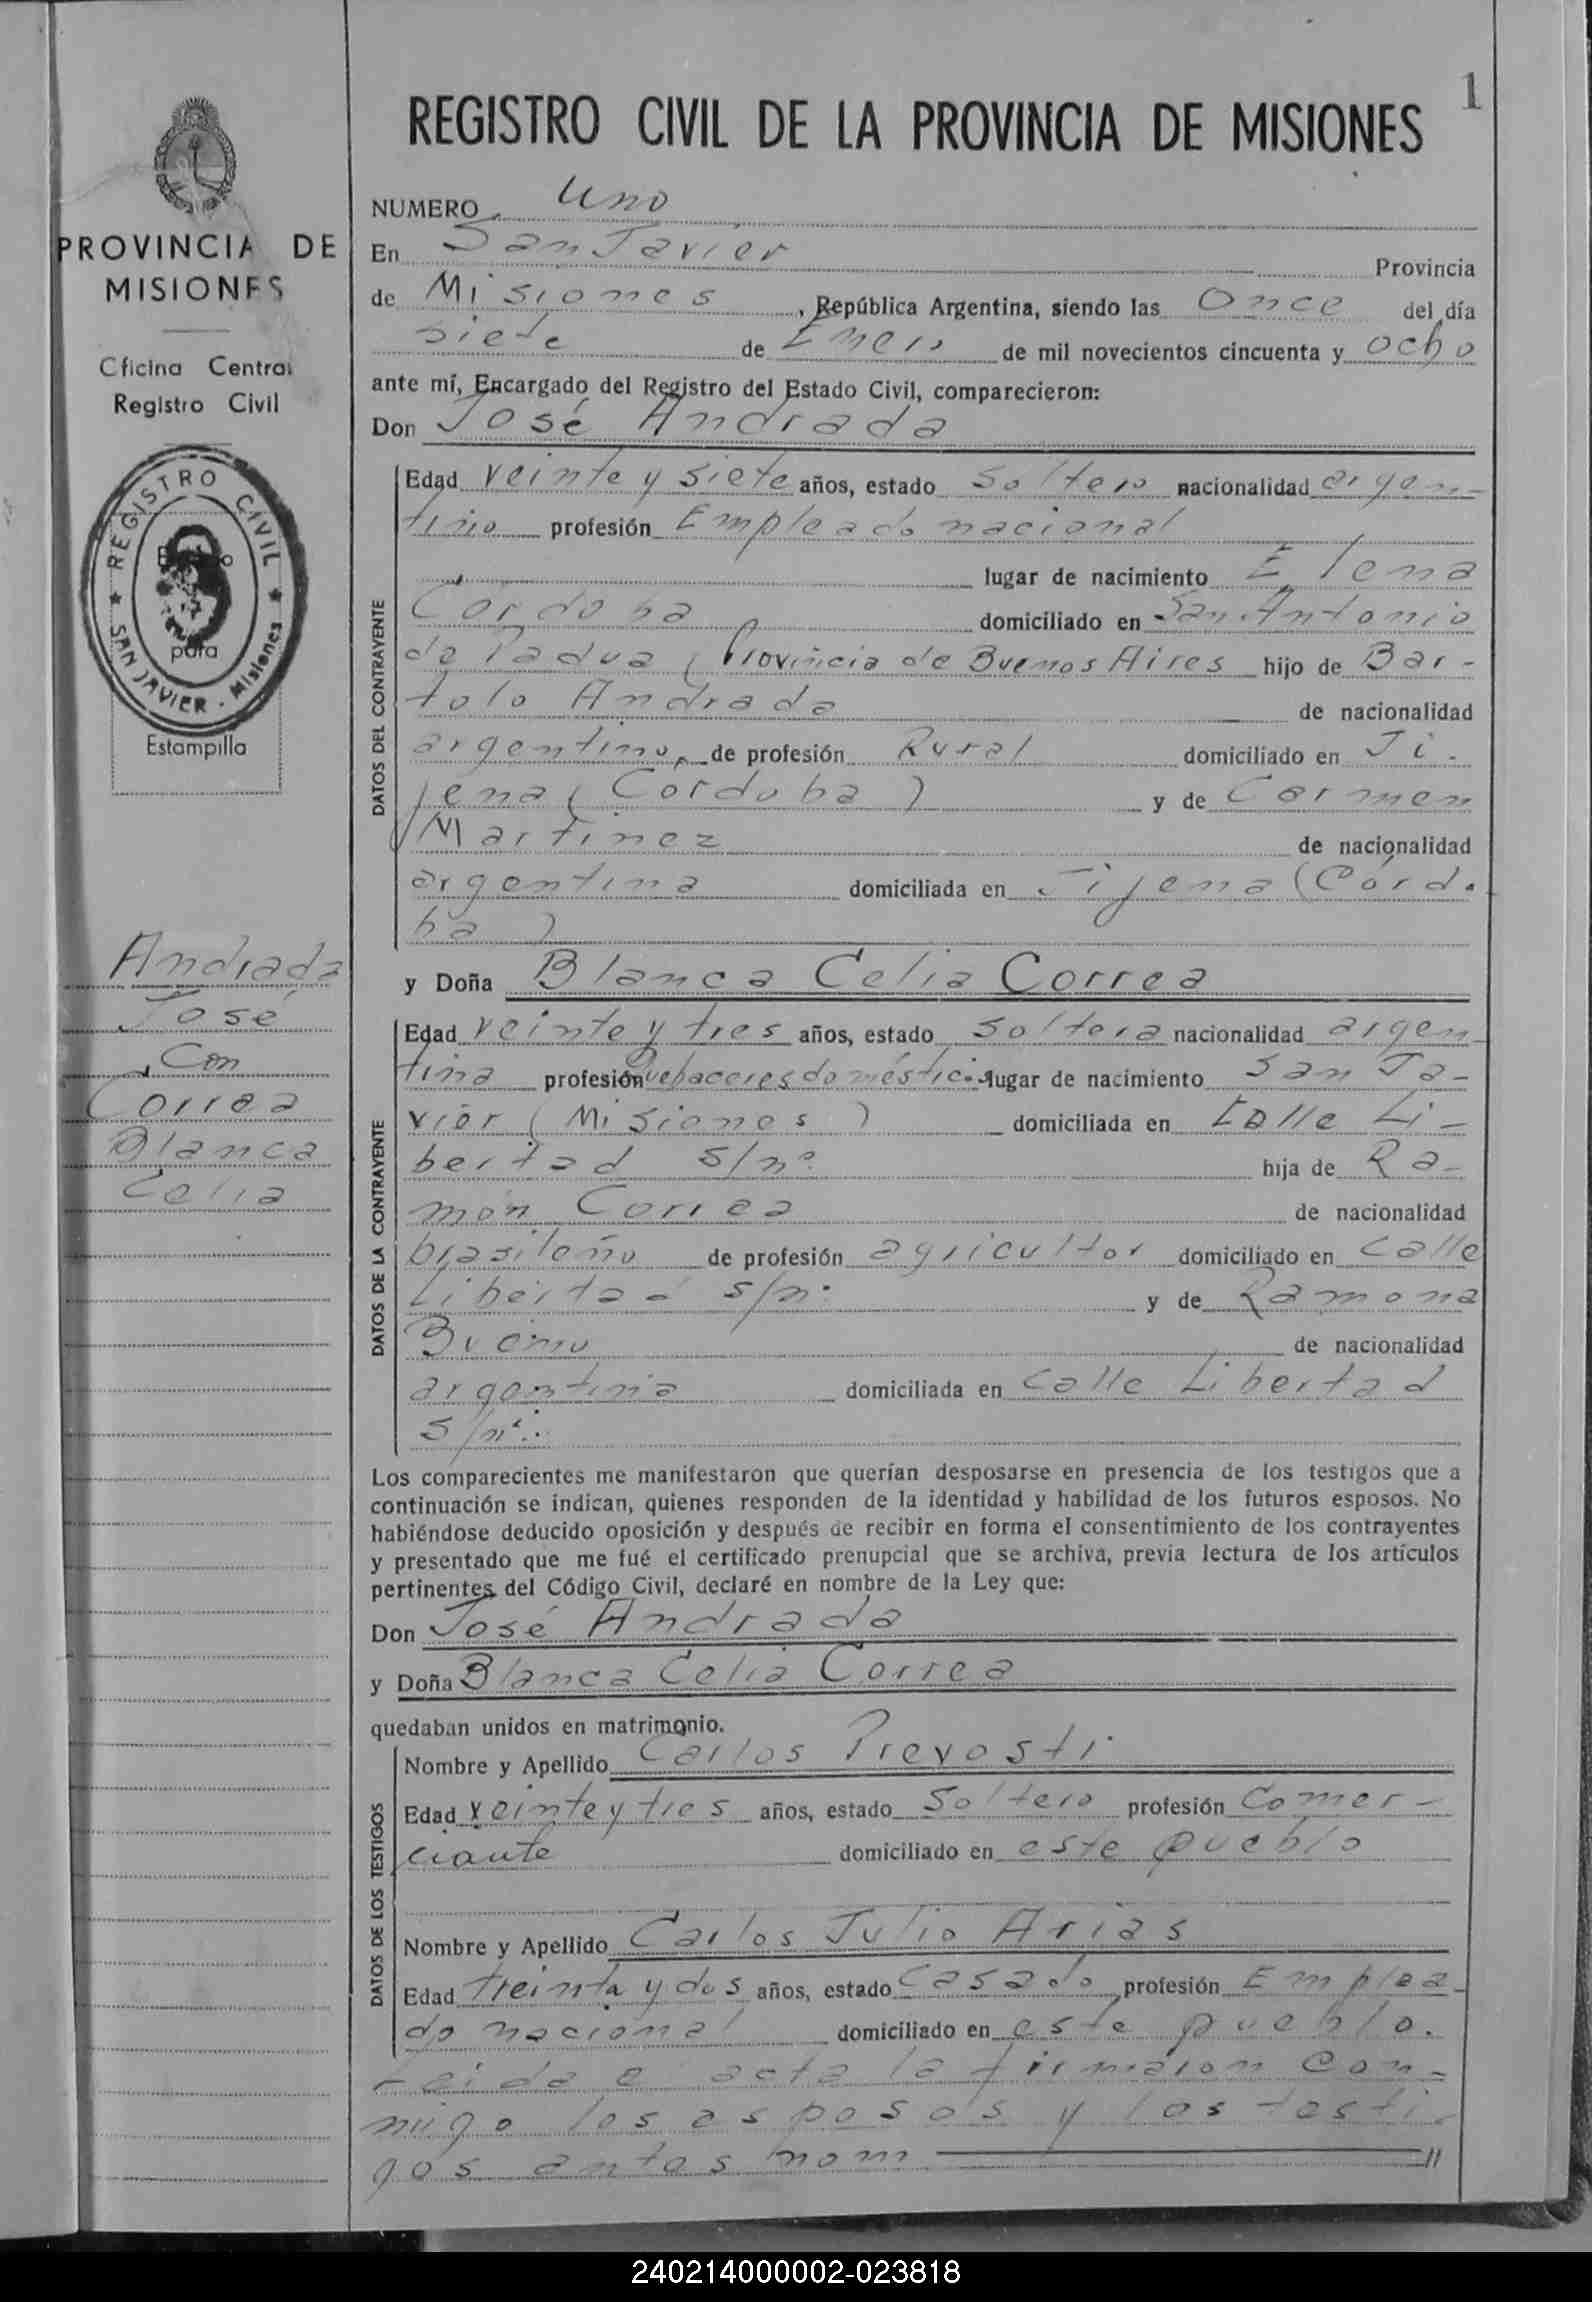 1
REGISTRO CIVIL DE LA PROVINCIA DE MISIONES
PROVINCIA DE
MISIONES
Oficina Central
Registro Civil
REGISTRO CIVIL
SAN JAVIER - Misiones
para
Estampilla
Andrada
José
Con
Correa
Blanca
Celia
NUMERO Uno
En San Javier Provincia
de Misiones, República Argentina, siendo las Once del día
siete de Enero de mil novecientos cincuenta y ocho
ante mí, Encargado del Registro del Estado Civil, comparecieron:
Don José Andrada
DATOS DEL CONTRAYENTE
Edad veinte y siete años, estado soltero nacionalidad argen-
tino profesión Empleado nacional
lugar de nacimiento Elena
Córdoba domiciliado en San Antonio
de Padua (Provincia de Buenos Aires hijo de Bar-
tolo Andrada de nacionalidad
argentino, de profesión Rural domiciliado en Ji-
jena (Córdoba) y de Carmen
Martinez de nacionalidad
argentina domiciliada en Jijena (Córdo
ba)
y Doña Blanca Celia Correa
DATOS DE LA CONTRAYENTE
Edad veinte y tres años, estado soltera nacionalidad argen-
tina profesión Quehaceres doméstico lugar de nacimiento San Ja-
vier (Misiones) domiciliada en Calle Li-
bertad s/nº hija de Ra-
món Correa de nacionalidad
brasileño de profesión agricultor domiciliado en calle
Libertad s/nº y de Ramona
Bueno de nacionalidad
argentina domiciliada en calle Libertad
s/nº.
Los comparecientes me manifestaron que querían desposarse en presencia de los testigos que a
continuación se indican, quienes responden de la identidad y habilidad de los futuros esposos. No
habiéndose deducido oposición y después de recibir en forma el consentimiento de los contrayentes
y presentado que me fué el certificado prenupcial que se archiva, previa lectura de los artículos
pertinentes del Código Civil, declaré en nombre de la Ley que:
Don José Andrada
y Doña Blanca Celia Correa
quedaban unidos en matrimonio.
DATOS DE LOS TESTIGOS
Nombre y Apellido Carlos Prevosti
Edad veinte y tres años, estado soltero profesión Comer-
ciante domiciliado en este pueblo
Nombre y Apellido Carlos Julio Arias
Edad treinta y dos años, estado casado profesión Emplea-
do nacional domiciliado en este pueblo.
Leida e acta la firmaron con-
migo los esposos y los testi-
gos antes nom ——//
240214000002-023818